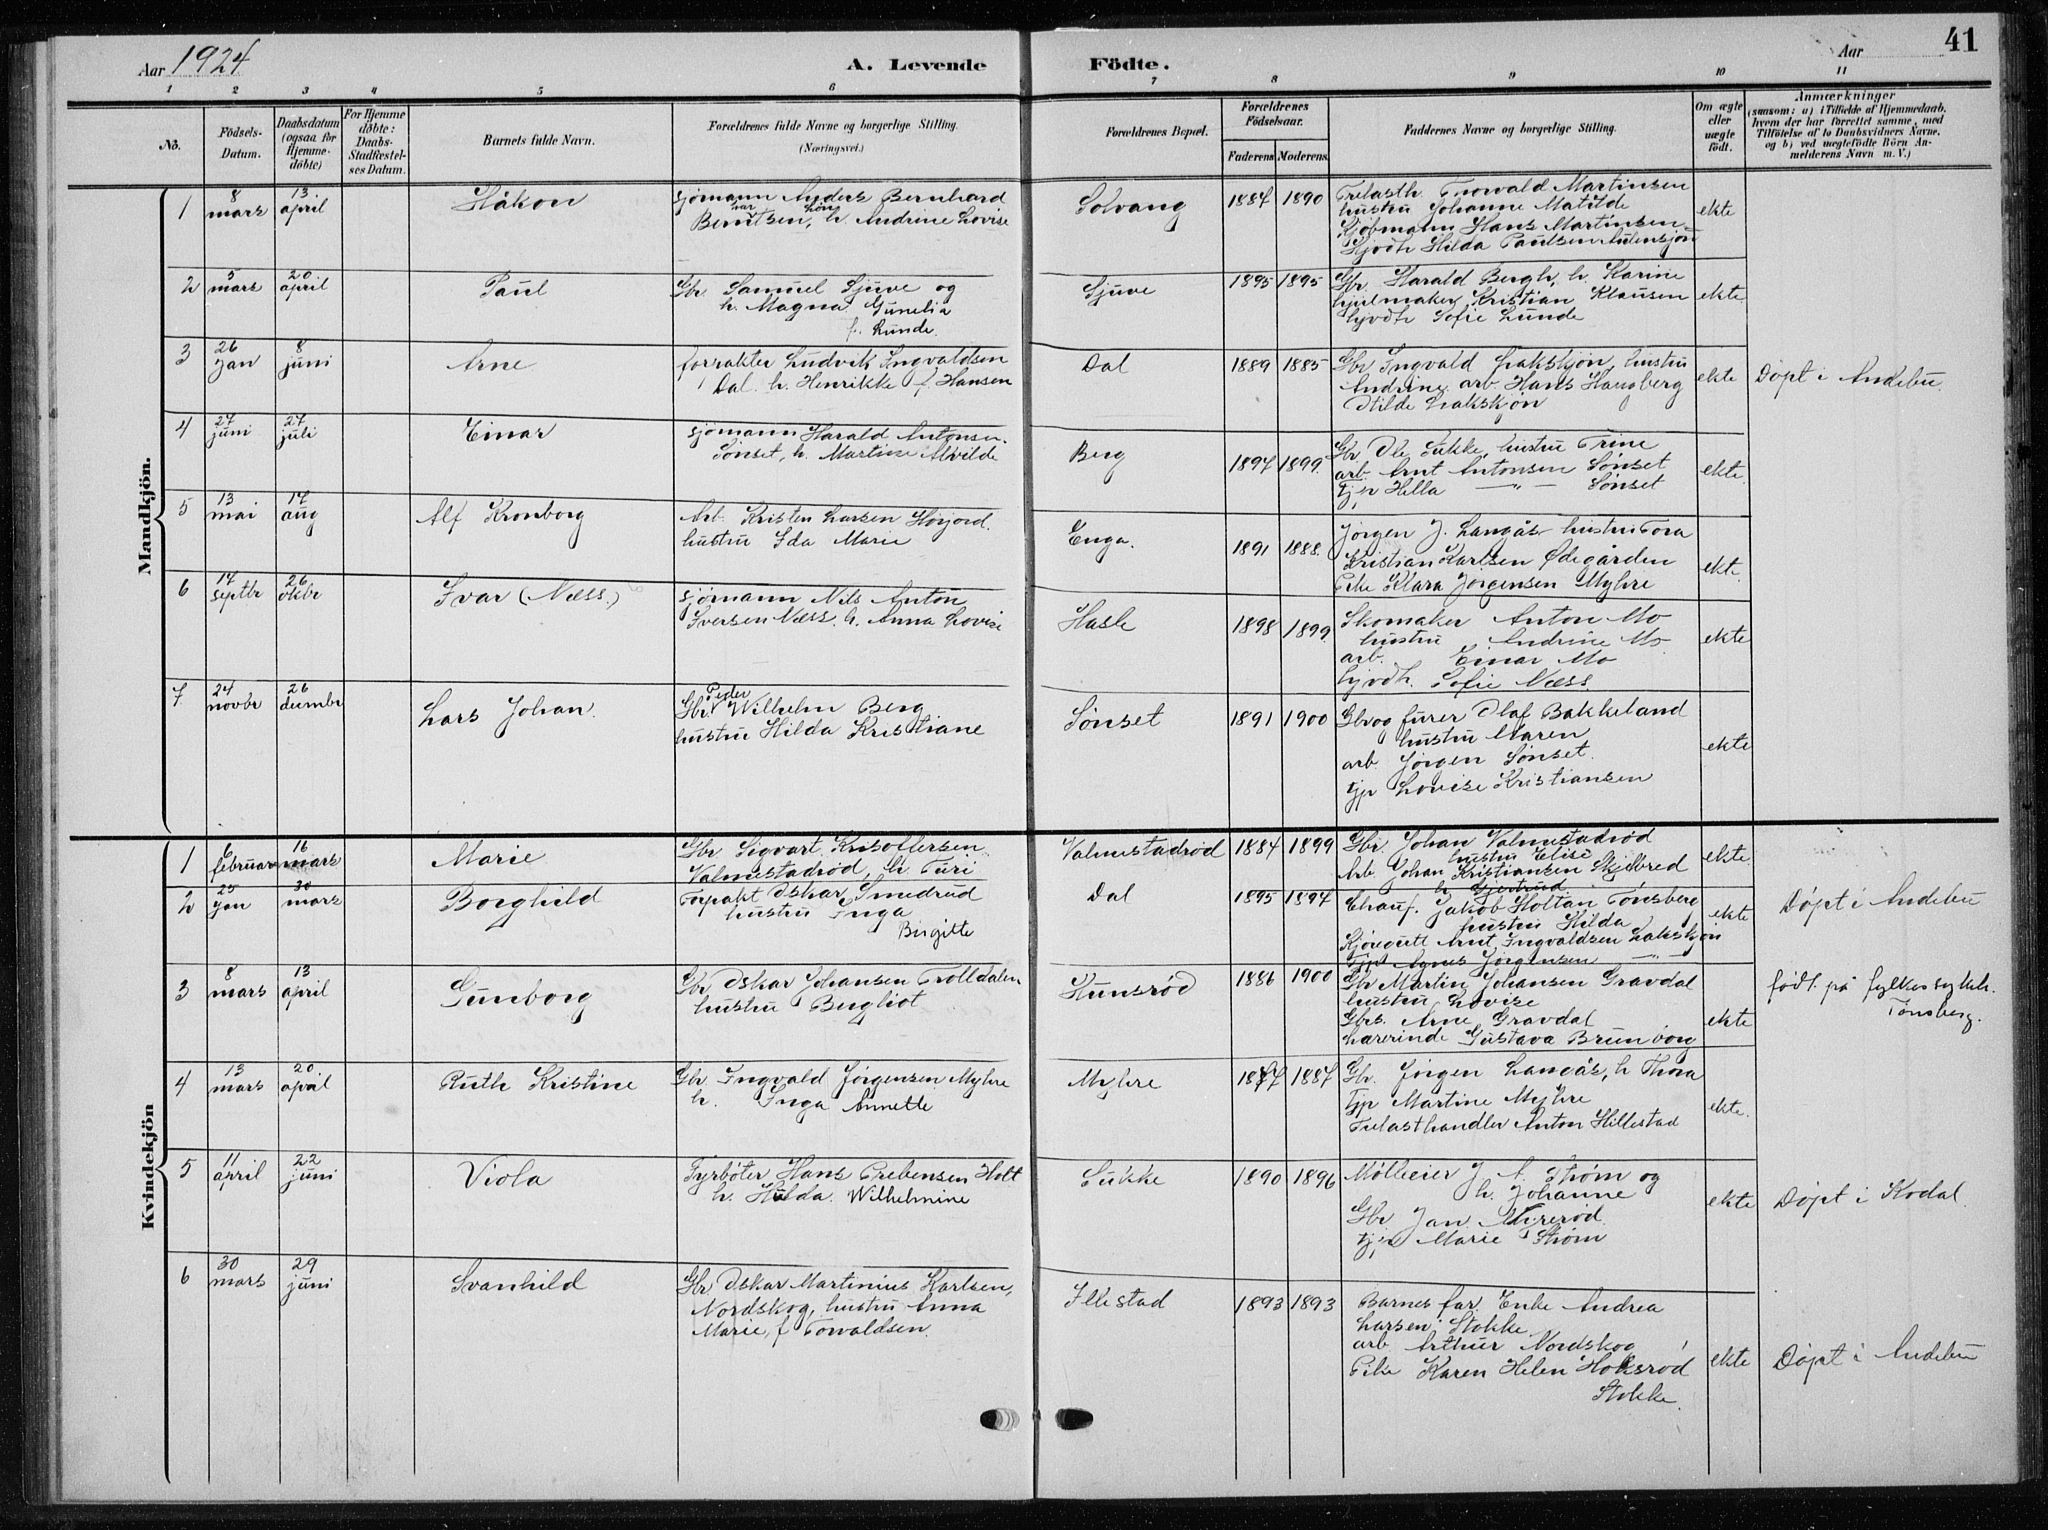 Aar 1924
A. Levende Födte.
Aar
41
1 2 3 4 5 6 7 8 9 10 11
No.
Födsels-Datum.
Daabsdatum (ogsaa for Hjemme-døbte)
For Hjemme døbte: Daabs-Stadfæstel-ses Datum.
Barnets fulde Navn.
Forældrenes fulde Navne og borgerlige Stilling. (Næringsvei.)
Forældrenes Bopæl.
Forældrenes Födselsaar.
Faderens Moderens
Faddernes Navne og borgerlige Stilling.
Om ægte eller uægte født.
Anmærkninger
(saasom: a) i Tilfælde af Hjemmedaab. hvem der har forrettet samme, med Tilföielse af to Daabsvidners Navne, og b) ved uægtefödte Börn An-melderens Navn m. V.)
Mandkjön.
1 8 mars 13 april Håkon
sjømann Anders Bernhard
Berntsen, h. Andrine Lovise
Solvang 1887 1890
Trelasth. Thorvald Martinsen
hustru Johanne Matilde
Kjøbmann Hans Martinsen
Hjvdh Hilda Paulsen
ekte
2 5 mars 20 april Paul
Gbr. Samuel Sjuve og
h. Magna Gunelia
f. Lunde.
Sjuve 1895 1895
Gbr. Harald Bergh, h. Karine
hjulmaker Kristian Klausen
hjvdh Sofie Lunde
ekte
3 26 jan 8 juni Arne
forpakter Ludvik Ingvaldsen
Dal. h. Henrikke f. Hansen
Dal 1889 1885
Gbr Ingvald Lakskjøn, hustru
Andrine, arb. Hans Haugberg
Hilde Lakskjøn
ekte
Døpt i Andebu.
4 27 juni 27 juli Einar
sjømann Harald Antonsen
Sønset, h. Martine Alvilde
Berg 1897 1899
Gbr Ole Sukke, hustru Trine
arb. Arnt Antonsen Sønset
tjp Hella — " — Sønset
ekte
5 13 mai 17 aug Alf Kronborg
Arb. Kristen Larsen Høijord.
hustru Ida Marie
Enga. 1891 1888.
Jørgen J. Langås hustru Tora
Kristian Karlsen Ødegården
Pike Klara Jørgensen Myhre
ekte.
6 14 septbr 26 oktbr Ivar (Næss.)
sjømann Nils Anton
Iversen Næss. h. Anna Lovise
Hasle 1898 1899.
Skomaker Anton Mo
hustru Andrine Mo
arb. Einar Mo
hjvdh. Sofie Næss.
ekte
7. 24 novbr 26 desembr Lars Johan.
Gbr. Peder Wilhelm Berg
hustru Hilda Kristiane
Sønset 1891 1900
Gbr og furer Olaf Bakkeland
hustru Maren
arb. Jørgen Sønset.
tjp Lovise Kristiansen
ekte
Kvindekjön
1 6 februar 16 mars Marie
Gbr Sigvart Kristoffersen
Valmestadrød, h. Turi
Valmestadrød 1884 1899
Gbr. Johan Valmestadrød
hustru Elise
Arb Johan Kristiansen Skjelbred
h. Gjertrud
ekte
2 25 jan 30 mars Borghild
Forpakt Oskar Smedrud
hustru Inga
Birgitte
Dal 1895 1894
Chauf. Jakob Holtan Tønsberg
hustru Hilda
Kjøregutt Arnt Ingvaldsen Lakskjøn
Tjp Agnes Jørgensen — " —
ekte
Døpt i Andebu
3 8 mars 13 april Gunborg
Gbr Oskar Johansen Trolldalen
hustru Bergliot
Hunsrød 1886 1900
Gbr Martin Johansen Gravdal
hustru Lovise
Gbrs. Arne Gravdal
Lærerinde Gustava Brunborg
ekte
født på fylkessykeh.
Tønsberg.
4 13 mars 20 april Ruth Kristine
Gbr Ingvald Jørgensen Myhre
h. Inga Annette
Myhre 1887
Gbr. Jørgen Langås, h Thora
tjp Martine Myhre
Trelasthandler Anton Hillestad
ekte.
5 11 april 22 juni Viola
Fyrbøter Hans Prebensen Holt
h. Hilda Wilhelmine
Sukke 1890 1896
Mølleeier J A. Strøm og
h. Johanne
Gbr Jan
tjp Marie Strøm
ekte
Døpt i Kodal.
6 30 mars 29 juni Svanhild
Gbr Oskar Martinius Karlsen,
Nordskog, hustru Anna
Marie, f Torvaldsen.
Illestad 1893 1893
Barnes far. Enke Andrea
Larsen Stokke
arb. Arthur Nordskog
Pike Karen Helen Hoksrød
Stokke.
ekte
Døpt i Andebu